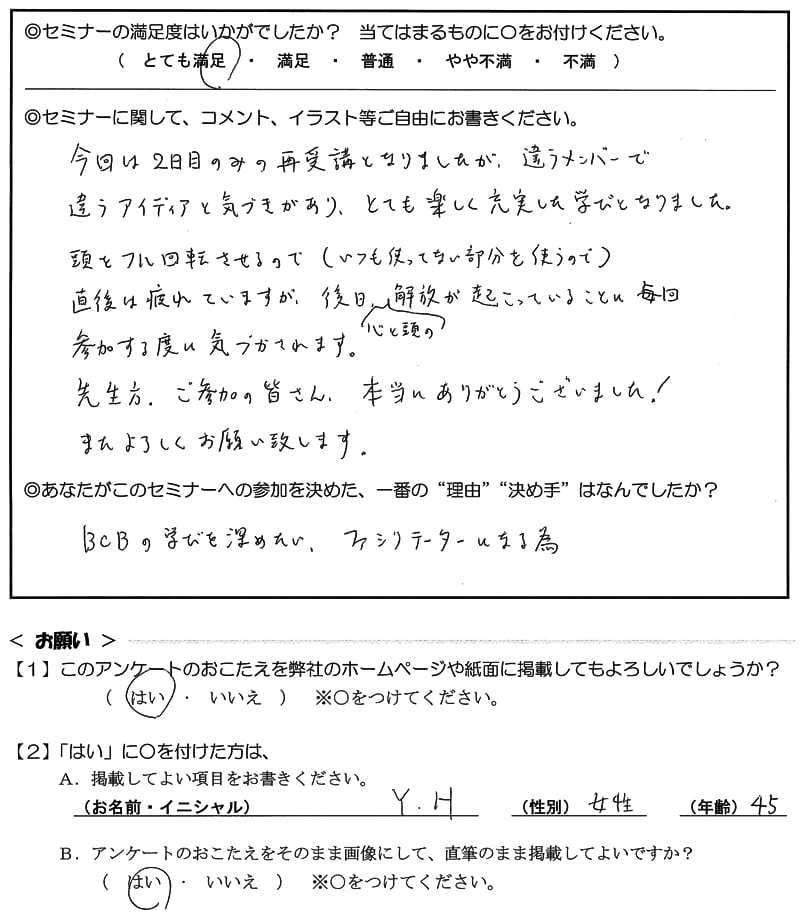 ◎セミナーの満足度はいかがでしたか？　当てはまるものに〇をお付けください。
（　とても満足　・　満足　・　普通　・　やや不満　・　不満　）
◎セミナーに関して、コメント、イラスト等ご自由にお書きください。
今回は2日目のみの再受講となりましたが、違うメンバーで
違うアイディアと気づきがあり、とても楽しく充実した学びとなりました。
頭をフル回転させるので（いつも使ってない部分を使うので）
直後は疲れていますが、後日、解放が起こっていることに毎回
心と頭の
参加する度に気づかされます。
先生方、ご参加の皆さん、本当にありがとうございました！
またよろしくお願い致します。
◎あなたがこのセミナーへの参加を決めた、一番の“理由”“決め手”はなんでしたか？
BCBの学びを深めたい、ファシリテーターになる為
＜ お願い ＞
【１】このアンケートのおこたえを弊社のホームページや紙面に掲載してもよろしいでしょうか？
（　はい　・　いいえ　）　※〇をつけてください。
【２】「はい」に〇を付けた方は、
Ａ．掲載してよい項目をお書きください。
（お名前・イニシャル）　Y.H　（性別）女性　（年齢）45
Ｂ．アンケートのおこたえをそのまま画像にして、直筆のまま掲載してよいですか？
（　はい　・　いいえ　）　※〇をつけてください。